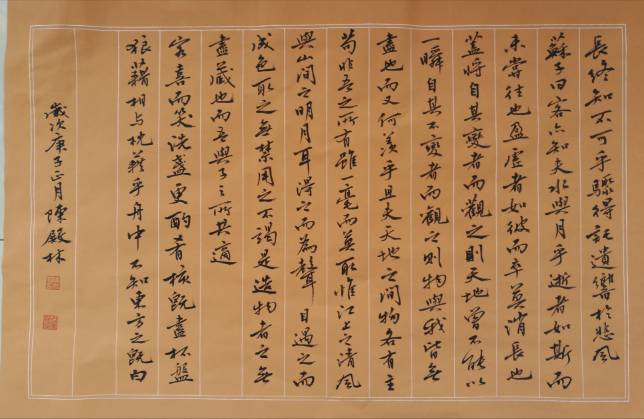 長終知不可乎驟得託遺響於悲風
蘇子曰客亦知夫水與月乎逝者如斯而
未嘗往也盈虛者如彼而卒莫消長也
蓋將自其變者而觀之則天地曾不能以
一瞬自其不變者而觀之則物與我皆無
盡也而又何羨乎且夫天地之間物各有主
苟非吾之所有雖一毫而莫取惟江上之清風
與山間之明月耳得之而為聲目遇之而
成色取之無禁用之不竭是造物者之無
盡藏也而吾與子之所共適
客喜而笑洗盞更酌肴核既盡杯盤
狼藉相与枕藉乎舟中不知東方之既白
歲次庚子正月陳殿林